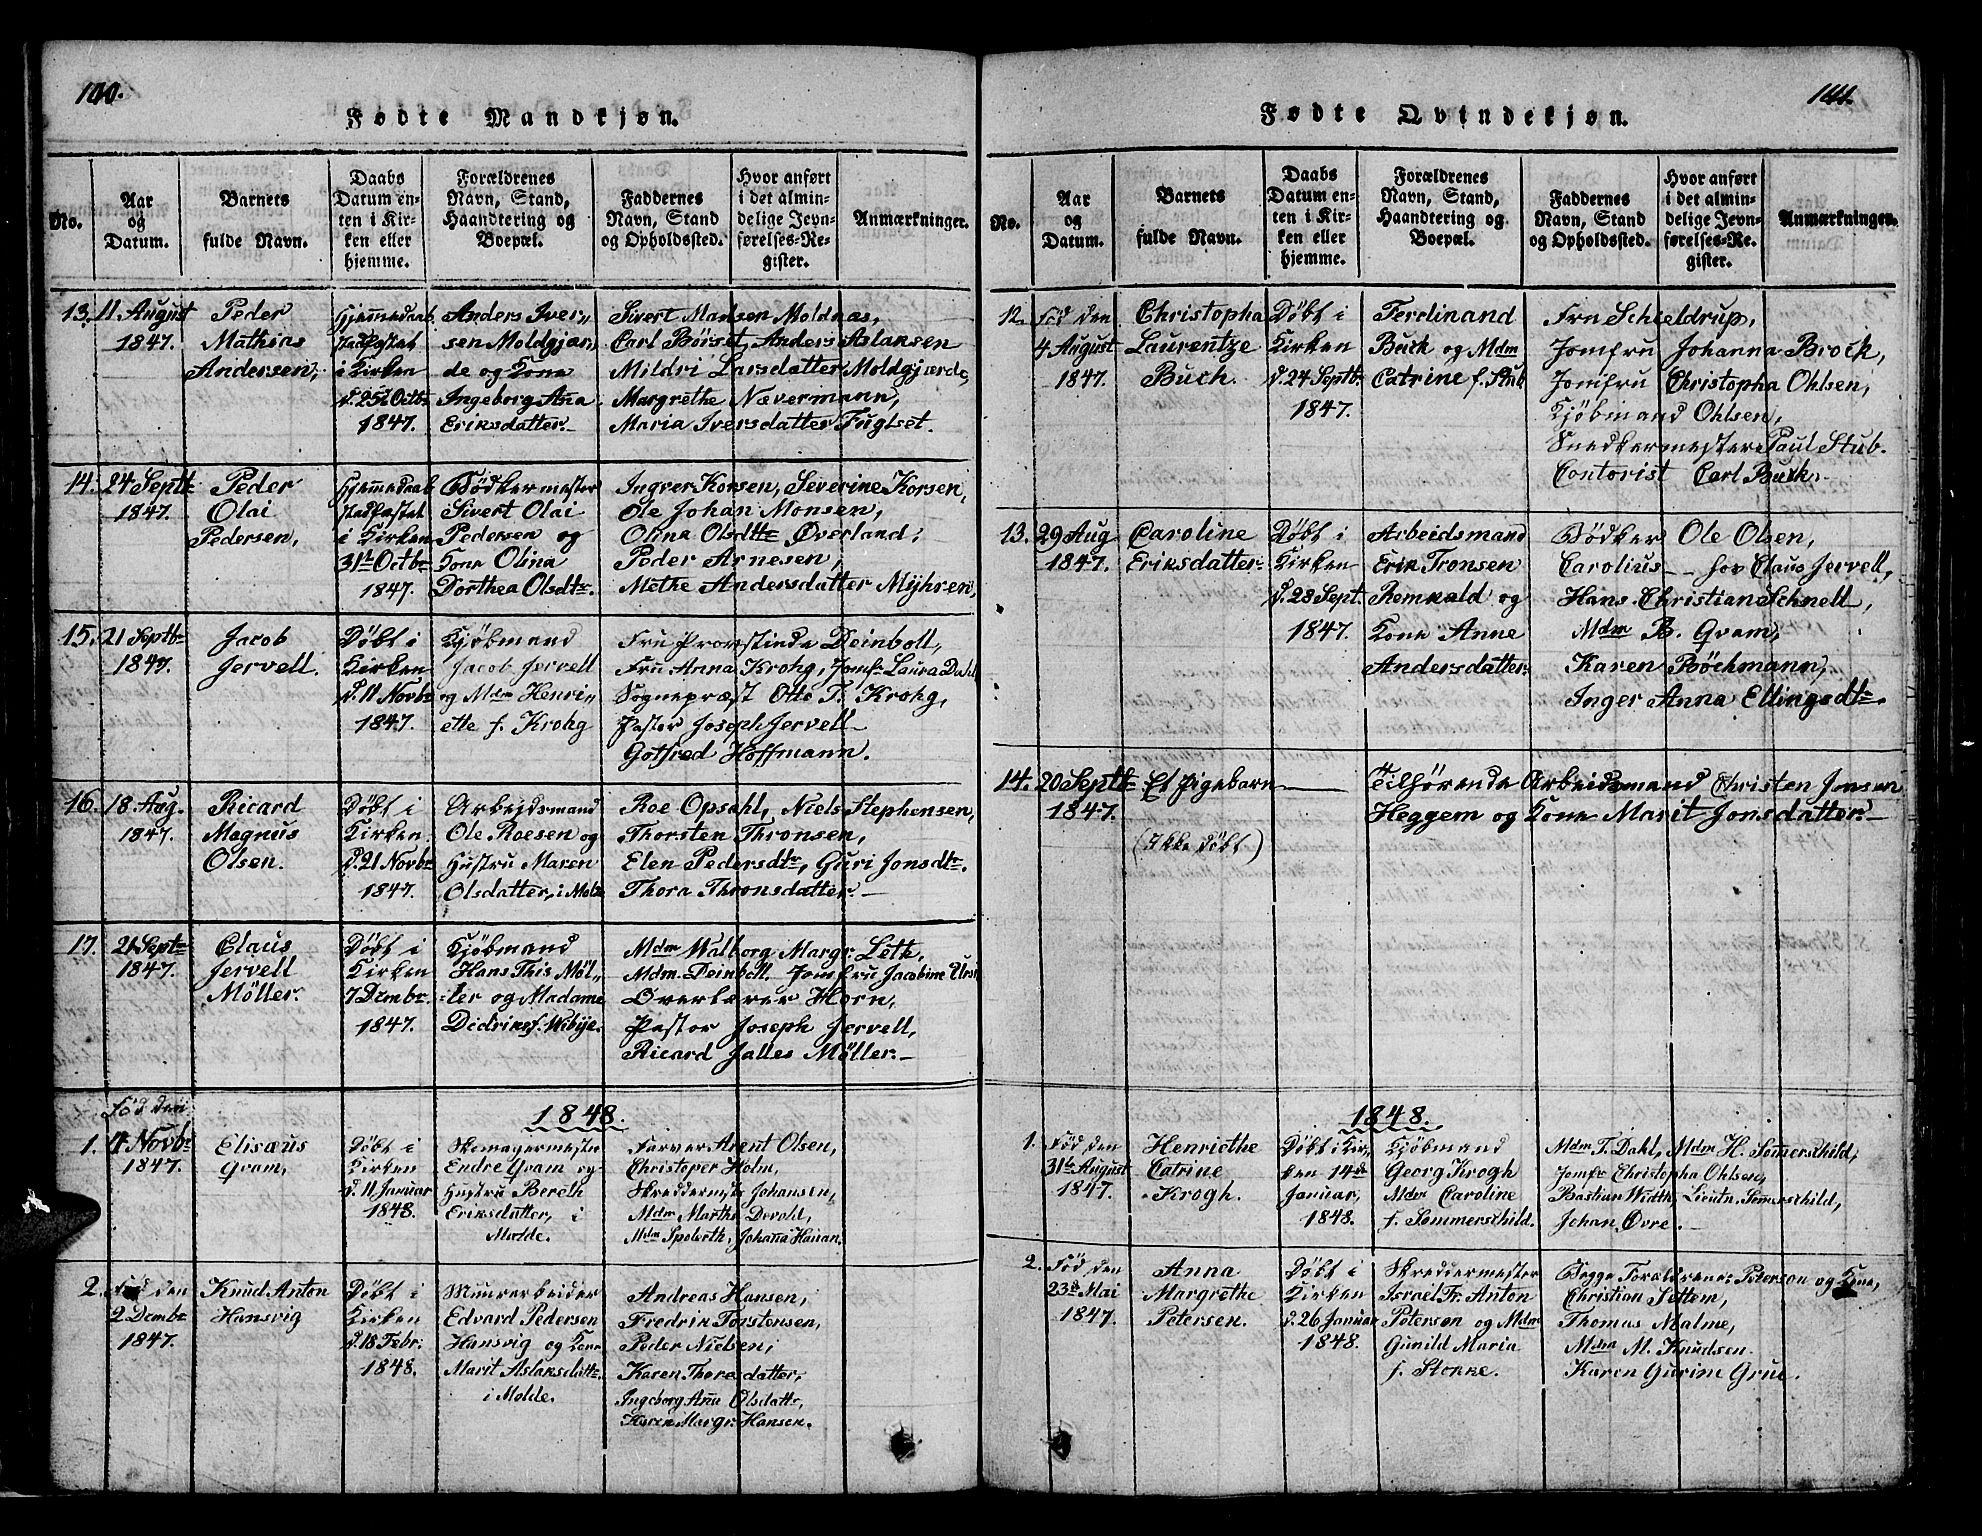 140.
Fødte Mandkjøn.
No.
Aar
og
Datum.
Barnets
fulde Navn.
Daabs
Datum en-
ten i Kir-
ken eller
hjemme.
Forældrenes
Navn, Stand,
Haandtering og
Boepæl.
Faddernes
Navn, Stand
og Opholdssted.
Hvor anført
i det almin-
delige Jevn-
førelses-Re-
gister.
Anmærkninger.
13. 11 August
1847.
Peder
Mathias
Andersen,
Hjemmedaab
Stadfæstet
i Kirken
d. 25t Octbr
1847.
Anders Iver,,
sen Moldgjær,,
de og Kone
Ingeborg Ana
Eriksdatter.
Sivert Mansen Moldnæs,
Carl Børset, Anders Aslaksen
Mildri Larsdatter Moldgjærde,
Margrethe Nævermann,
Maria Iversdatter Fuglset.
14. 24 Septb
1847.
Peder
Olai
Pedersen,
Hjemmedaab
Stadfæstet
i Kirken
31t Octbr
1847.
Bødkermester
Sivert Olai
Pedersen og
Kone Olina
Dorthea Olsdtr.
Ingver Korsen, Severine Korsen,
Ole Johan Monsen,
Olina Olsdttr Øverland,
Peder Arnesen,
Methe Andersdatter Myhren,
15. 21 Septbr
1847.
Jacob
Jervell.
Døbt i
Kirken
d. 11 Novbr
1847.
Kjøbmand
Jacob Jervell
og Mdm Henri,,
ette f. Krohg
Fru Provstinde Deinboll,
Fru Anna Krohg, Jomfr Laura Dahl
Sognepræst Otto T. Krohg,
Pastor Joseph Jervell
Gotfred Hoffmann.
16. 18 Aug.
1847.
Ricard
Magnus
Olsen.
Døbt i
Kirken
d. 21 Novbr
1847.
Arbeidsmand
Ole Roesen og
Hustru Maren
Olsdatter, i Molde
Roe Opsahl, Niels Stephensen,
Thorsten Thronsen,
Elen Pedersdtr, Guri Jonsdtr.
Thora Thronsdatter.
17. 21 Septr
1847.
Claus
Jervell
Möller.
Døbt i
Kirken
7 Dembr.
1847.
Kjøbmand
Hans This Möl-
-ler og Madame
Didrike f. Wibye.
Mdm Walborg Margr. Leth,
Mdm. Deinboll, Jomfru Jacobine
Overlærer Horn,
Pastor Joseph Jervell,
Ricard Jalles Möller.
1848.
Fød den
1. 4 Novbr
1847.
Elisæus
Qvam,
Døbt i
Kirken
d. 11 Januar
1848.
Skomagermester
Endre Qvam og
Hustru Bereth
Eriksdatter, i
Molde.
Farver Arent Olsen,
Christoper Holm,
Skreddermestr Johansen,
Mdm Martha Devold,
Mdm Johana
2. Fød den
2 Dembr
1847.
Knud Anton
Hansvig
Døbt i
Kirken
d. 18 Febr.
1848.
Murerarbeider
Edvard Pedersen
Hansvig og Kone
Marit Aslaksdattr
i Molde.
Andreas Hansen,
Fredrik Torstensen,
Peder Nielsen,
Karen Thoresdatter,
Ingeborg Ann Olsdattr,
Karen Margr. Hansen.
141.
Fødte Qvindekjøn.
No.
Aar
og
Datum.
Barnets
fulde Navn.
Daabs
Datum en-
ten i Kir-
ken eller
hjemme.
Forældrenes
Navn, Stand,
Haandtering og
Boepæl.
Faddernes
Navn, Stand
og Opholdssted.
Hvor anført
i det almin-
delige Jevn-
førelses-Re-
gister.
Anmærkninger.
12. Fød den
4 August
1847.
Christopha
Laurentze
Buch.
Døbt i
Kirken
d. 24 Septb
1847.
Ferdinand
Buck og Mdm
Catrine f. Stub
Fru Schieldrup,
Jomfru Johanna Brock,
Jomfru Christopha Ohlsen,
Kjøbmand Ohlsen,
Snedkermester Paul Stub.
Contorist Carl Buck.
13. 29 Aug
1847.
Caroline
Eriksdatter
Døbt i
Kirken
d. 28 Sept.
1847.
Arbeidsmand
Erik Tronsen
Remvald og
Kone Anne
Andersdatter.
Bødker Ole Olsen,
Carolius hos Claus Jervell,
Hans Christian Schnell,
Mdm B. Qvam,
Karen Böchmann,
Inger Anna Ellingsdtr.
14. 20 Septb
1847.
Et Pigebarn
(Ikke døbt)
Tilhørende Arbeidsmand Christen Jonsen
Heggem og Kone Marit Jonsdatter.
1848.
1. Fød den
31te August
1847.
Henriethe
Catrine
Krogh.
Døbt i Kir,,
ken 14de
Januar,
1848.
Kjøbmand
Georg Krogh
Mdm Caroline
f. Sommerschild.
Mdm T. Dahl, Mdm H. Somerschild,
Jomfr Christopha Ohlsen,
Bastian Width, Lieutn. Somerschild,
Johan Øvre.
2. Fød den
23d Mai
1847.
Anna
Margrethe
Petersen.
Døbt i
Kirken
d. 26 Januar
1848.
Skreddermester
Israel Fr. Anton
Peterson og Mdm
Gunild Maria
f. Stokke.
Begge Forældrene: Peterson og Kone,
Christian Settem,
Thomas Malme,
Mdm M. Knudsen.
Karen Gurine Grue.